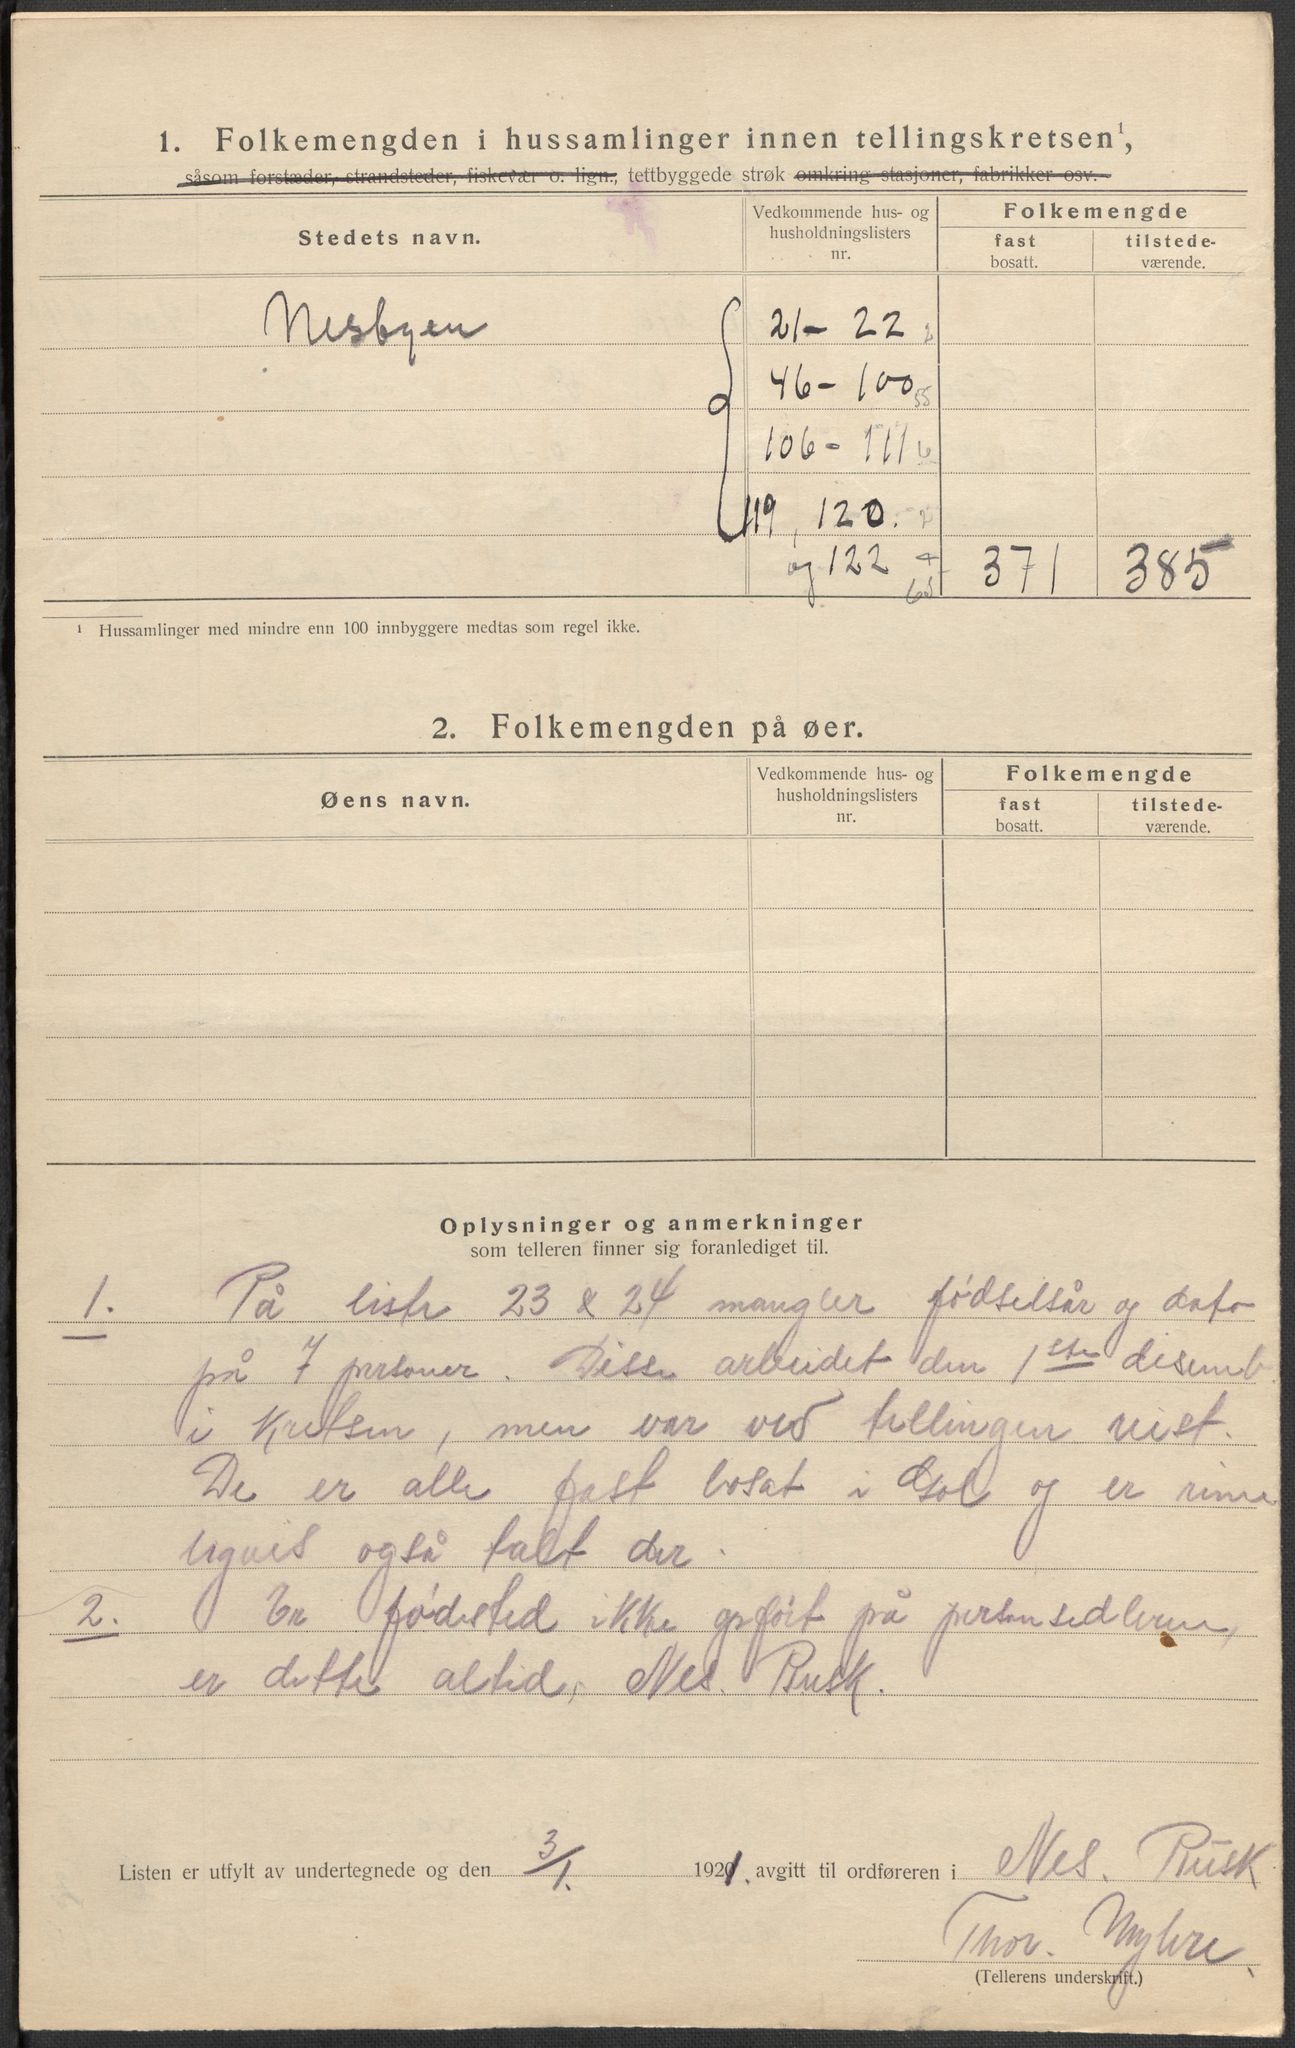 1. Folkemengden i hussamlinger innen tellingskretsen¹,
såsom forstæder, strandsteder, fiskevær o. lign., tettbyggede strøk omkring stasjoner, fabrikker osv.
Stedets navn.
Vedkommende hus- og
husholdningslisters
nr.
Folkemengde
fast
bosatt.
tilstede-
værende.
Nesbyen
21 - 22 2
46 - 100 55
106 - 111 6
119, 120. 2
og 122 371 385
¹ Hussamlinger med mindre enn 100 innbyggere medtas som regel ikke.
2. Folkemengden på øer.
Øens navn.
Vedkommende hus- og
husholdningslisters
nr.
Folkemengde
fast
bosatt.
tilstede-
værende.
Oplysninger og anmerkninger
som telleren finner sig foranlediget til.
1. På liste 23 & 24 mangler fødselsår og dato
på 7 personer. Disse arbeidet den 1ste desemb.
i Kretsen, men var ved tellingen reist.
De er alle fast bosat i Gol og er rime
ligvis også talt der.
2. Er fødested ikke opført på personsedlerne,
er dette altid, Nes. Busk.
Listen er utfylt av undertegnede og den 3/1. 1921. avgitt til ordføreren i Nes. Busk
Thor. Myhre
(Tellerens underskrift.)